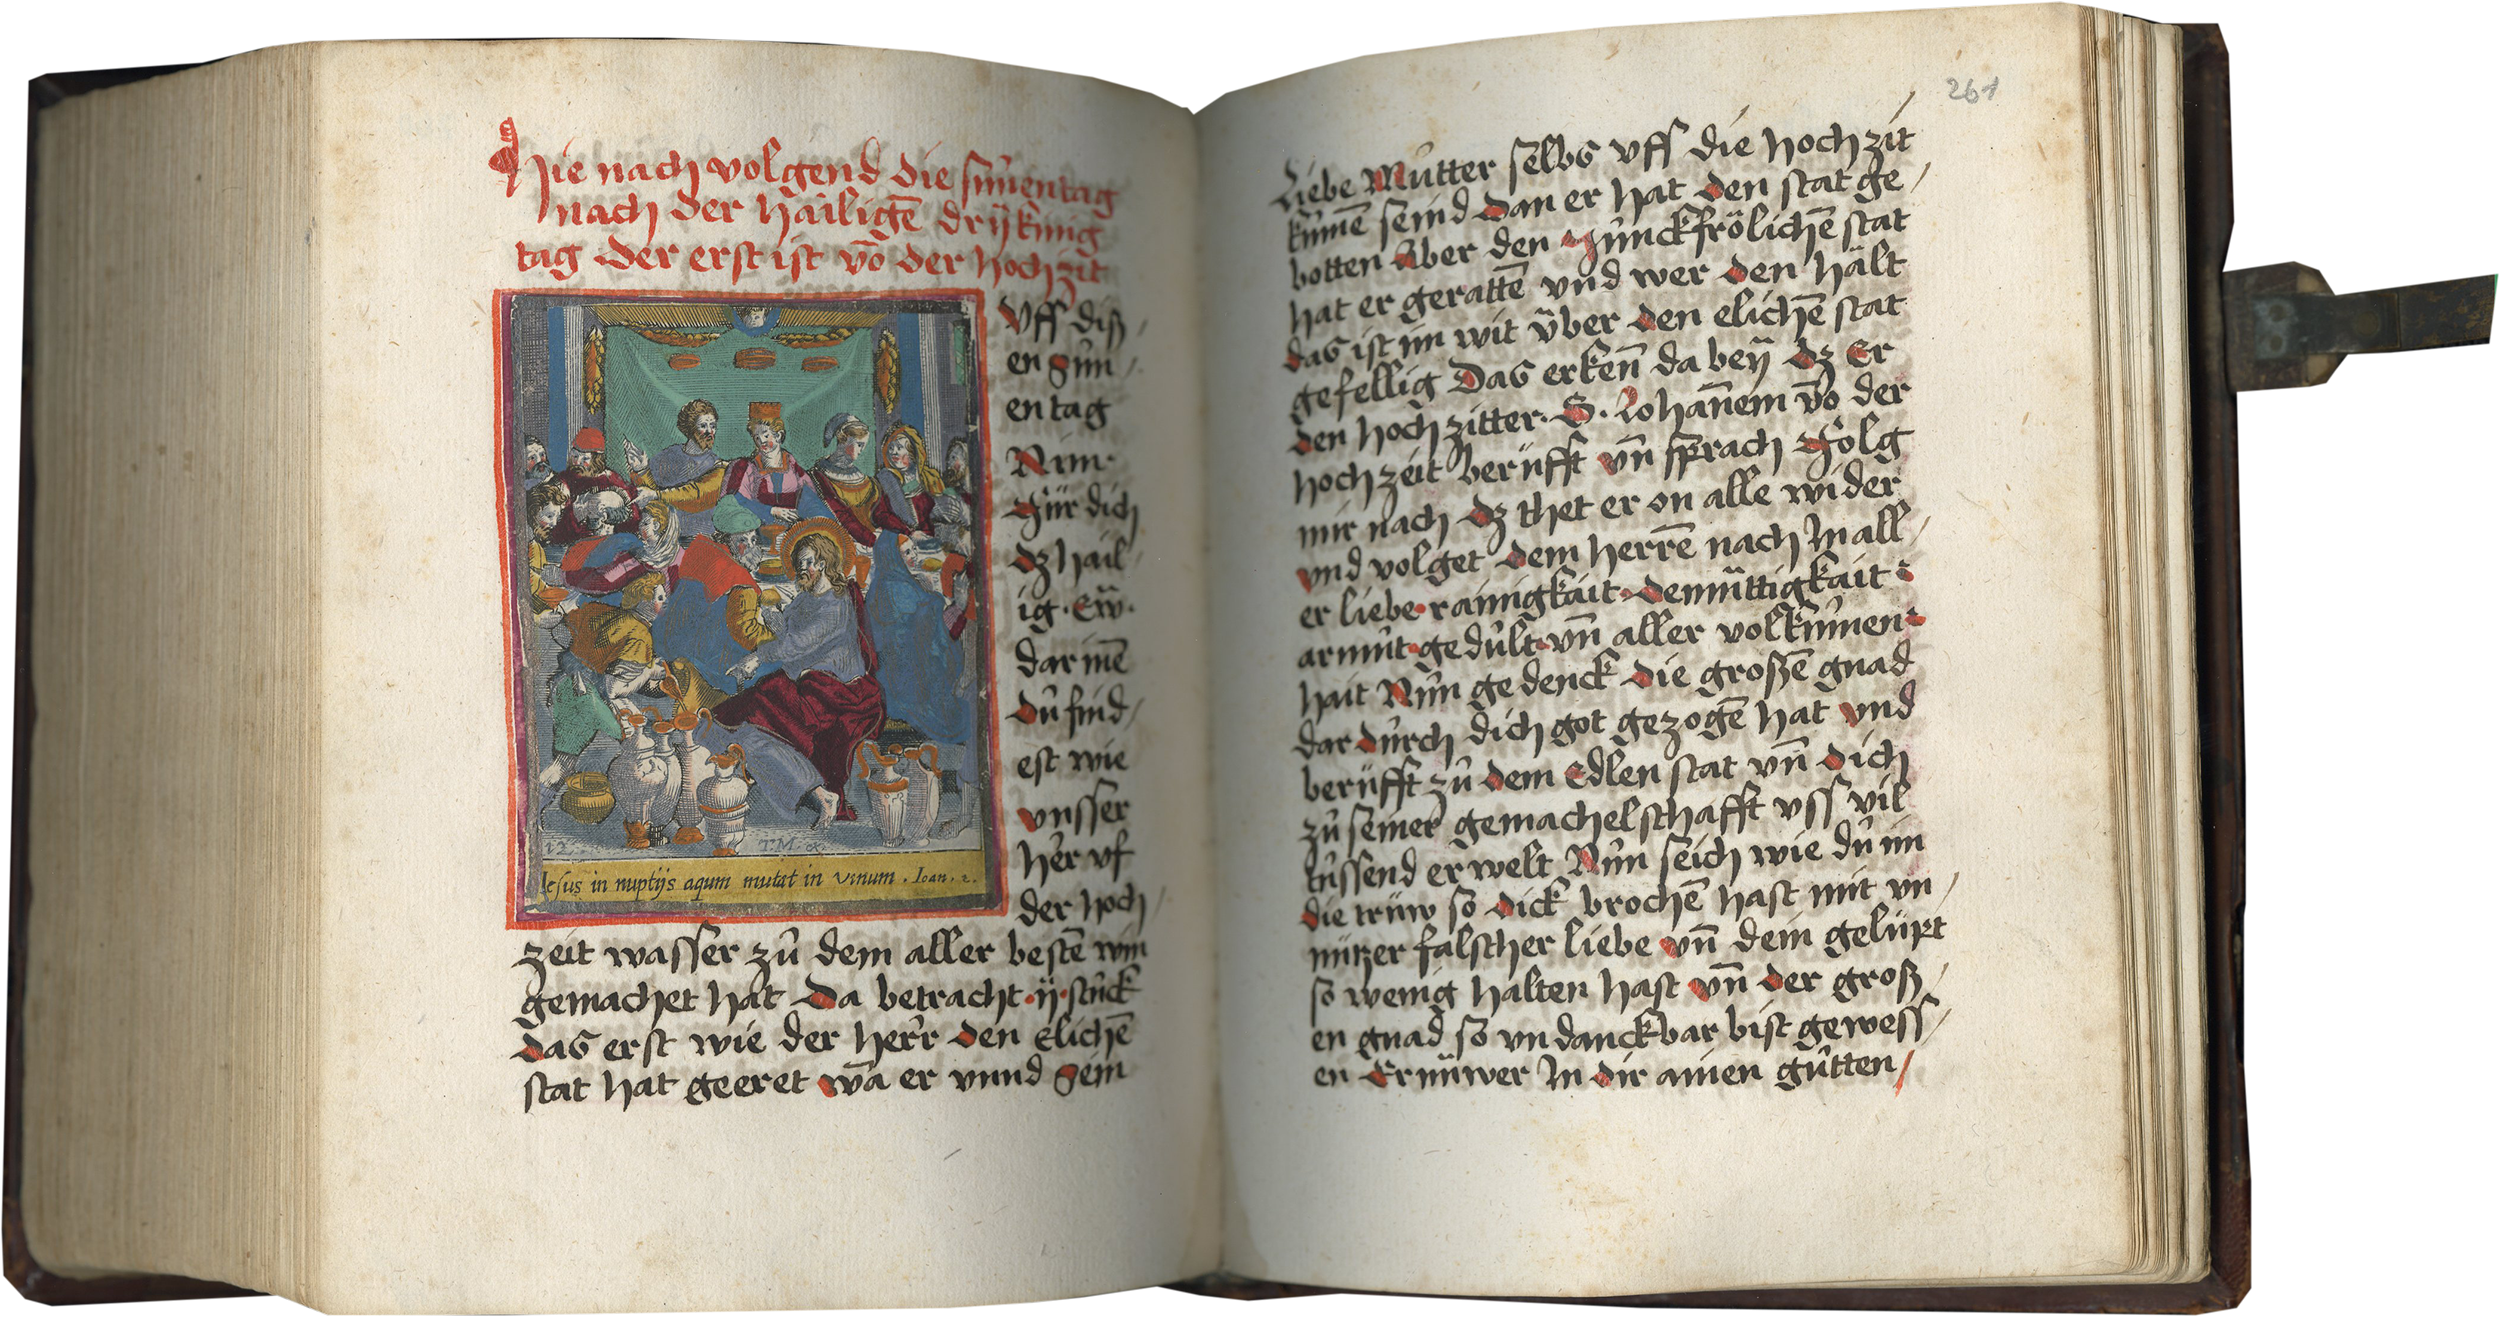 Hie nach volgend die sunentag
nach der hailigē drÿ kinig
tag der erst ist vō der hochzit
Uff diß
en Sun
en tag
Nim
Für dich
dz hail
ig · Ew̄ ·
dar inē
dū find
est wie
vnsser
her vf
der hoch
zeit wasser zů dem aller bestē win
gemachet hat Da betracht · ij · stuck
das erst wie der herr den Elichē
stat hat geeret wā er vnnd Sein
12
T.M. ex.
Iesus in nuptijs aqum mutat in vinum . Ioan . 2 .
261
Liebe Mutter selbs vff die hoch zit
kumē seind dan er hat den stat ge
botten Aber den Junckfrölichē stat
hat er gerattē vnd wer den hält
das ist im wit über den elichē stat
gefellig Das erkeñ da beÿ dz Er
den hoch zitter · S · Johañem vō der
hochzeit berüfft vñ sprach Folg
mir nach dz thet er on alle wider
vnd volget dem herrē nach In all
er liebe · rainigkait · demüttigkait ·
armut · gedult · vñ aller volkumen
hait Nun gedenck die großē gnad
dar durch dich got gezogē hat vnd
berüfft zů dem Edlen stat vñ dich
zů seiner gemachelschafft vss vil
tussend erwelt Nun seich wie du im
die trüw so dick brochē hast mit vn
nützer falscher liebe vñ dein gelüpt
so wenig halten hast vñ der groß
en gnad so vndanckbar bist gewess
en Ernüwer In dir ainen gutten